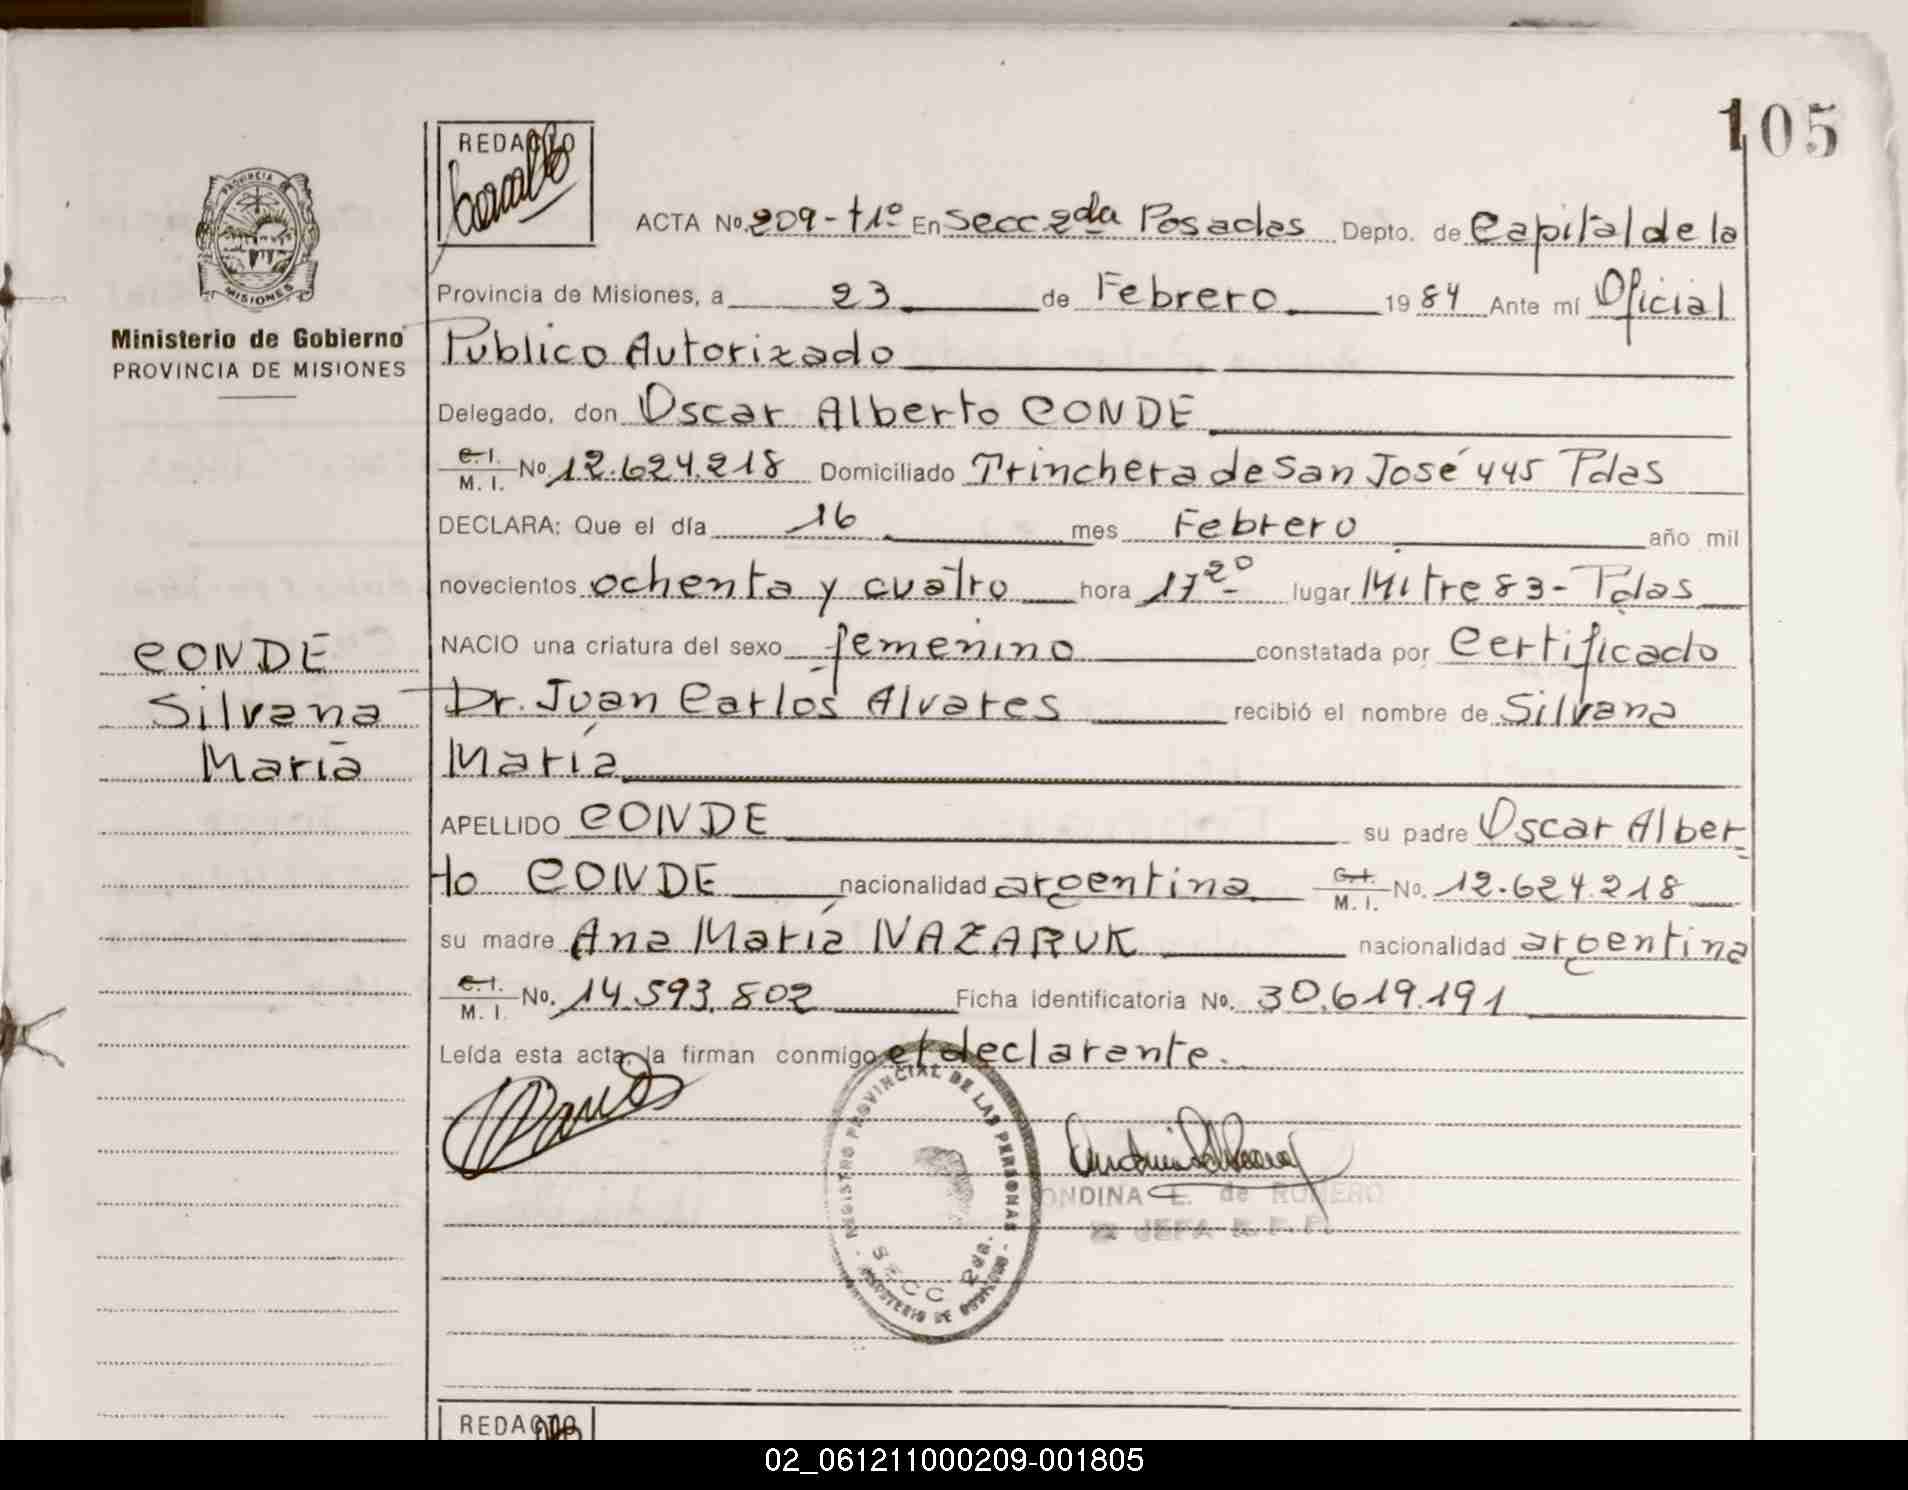 105
REDACTO
PROVINCIA DE
MISIONES
Ministerio de Gobierno
PROVINCIA DE MISIONES
ACTA No. 209-t1º En Secc 2da Posadas Depto. de Capital de la
Provincia de Misiones, a 23 de Febrero 1984 Ante mí Oficial
Publico Autorizado
Delegado, don Oscar Alberto CONDE
C. I. M. I. No 12.624.218 Domiciliado Trinchera de San José 445 Pdas
DECLARA: Que el día 16 mes Febrero año mil
novecientos ochenta y cuatro hora 17 20 lugar Mitre 83 - Pdas
NACIO una criatura del sexo femenino constatada por Certificado
Dr. Juan Carlos Alvares recibió el nombre de Silvana
María
CONDE
Silvana
María
APELLIDO CONDE su padre Oscar Alber-
to CONDE nacionalidad argentina C. I. M. I. No. 12.624.218
su madre Ana María NAZARUK nacionalidad argentina
C. I. M. I. No. 14.593.802 Ficha identificatoria No. 30.619.191
Leída esta acta, la firman conmigo el declarante.
REGISTRO PROVINCIAL DE LAS PERSONAS
SECC 2da.
MINISTERIO DE GOBIERNO
ONDINA E. de ROMERO
JEFA R.P.P.
REDACTO
02_061211000209-001805